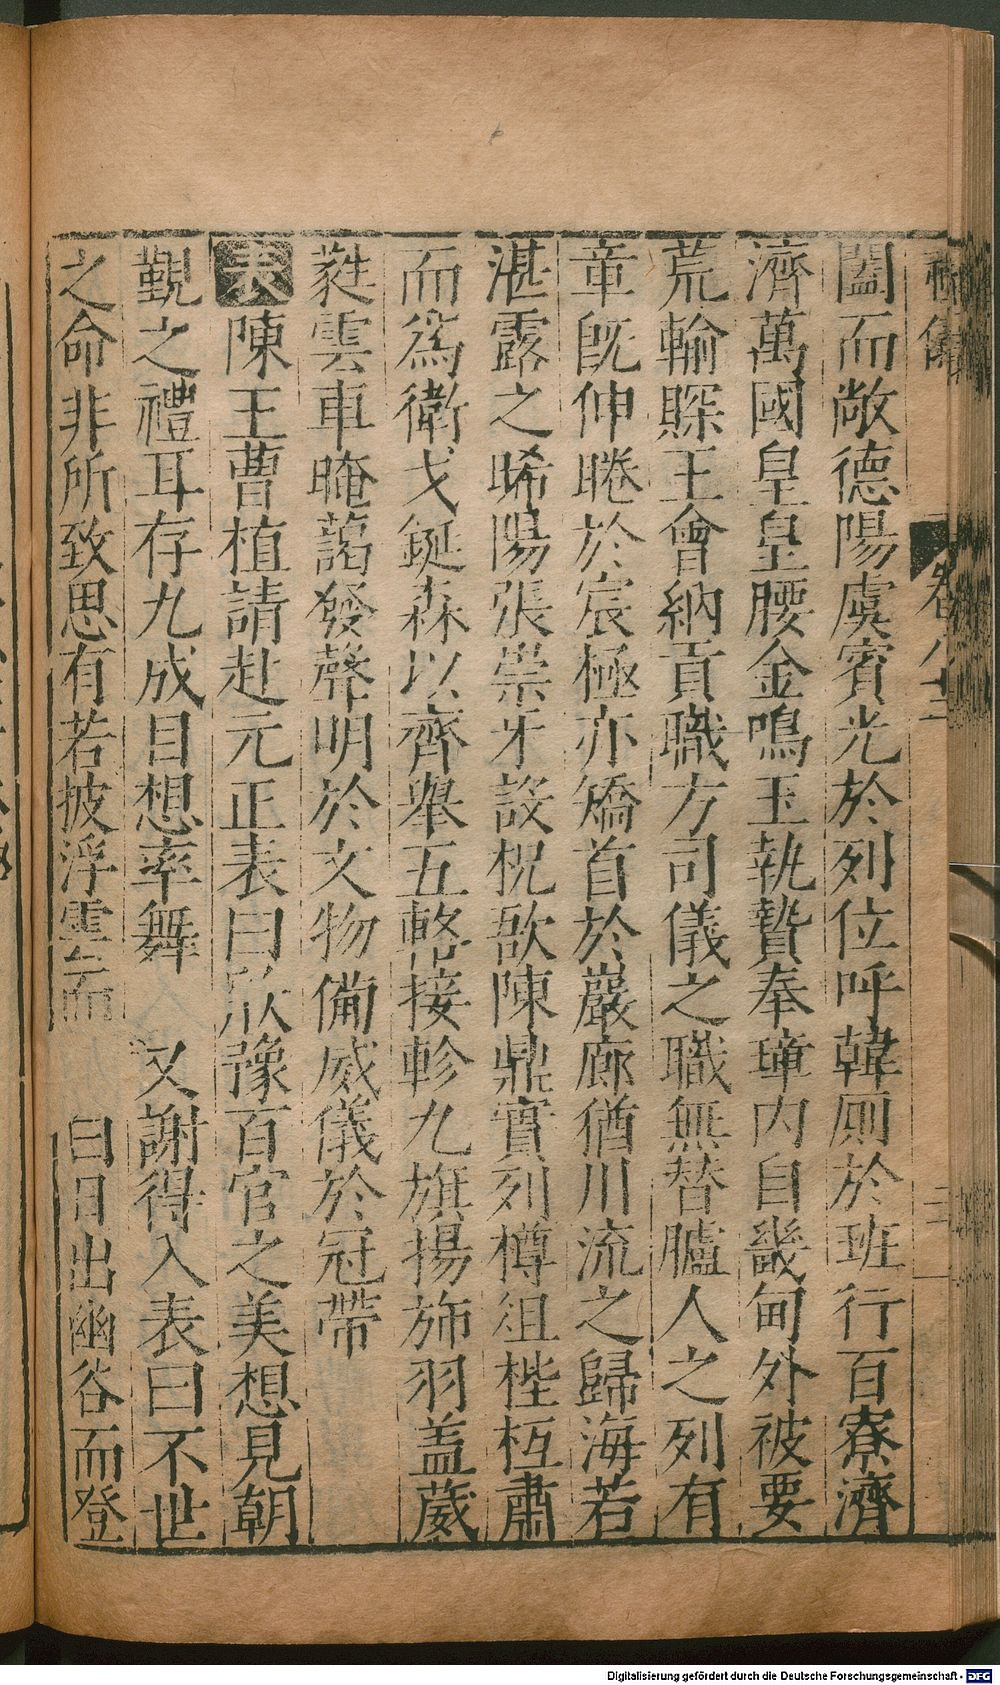 闔而敞德陽虞賓光於列位呼韓廁於班行百寮濟
濟萬國皇皇腰金鳴玉執贄奉璋内自畿甸外被要
荒輸賝王會納貢職方司儀之職無替臚人之列有
章旣伸睠於宸極亦矯首於巖廊猶川流之歸海若
湛露之晞陽張崇牙設柷敔陳鼎實列樽俎梐枑肅
而爲衛戈鋋森以齊舉五輅接軫九旗揚斾羽盖葳
蕤雲車晻藹發聲明於文物備威儀於冠帶
表陳王曹植請赴元正表曰欣豫百官之美想見朝
覲之禮耳存九成目想率舞 又謝得入表曰不世
之命非所致思有若披浮雲而 白日出幽谷而登
卷八十二
Digitalisierung gefördert durch die Deutsche Forschungsgemeinschaft - DFG